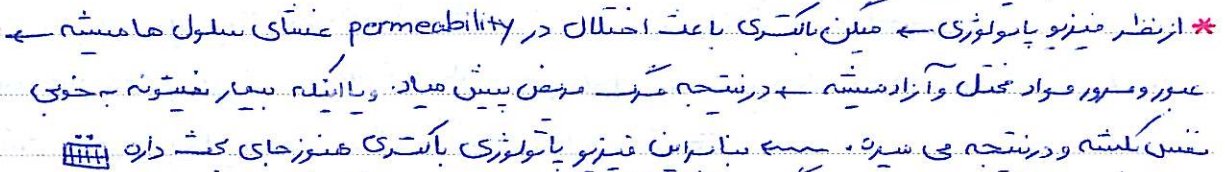 * از نظر فیزیو پاتولوژی ← میگن باکتری باعث اختلال در permeability غشای سلول ها میشه ←
عبور و مرور مواد مختل و آزاد میشه ← در نتیجه مرگ مریض پیش میاد. و یا اینکه بیمار نمیتونه به خوبی
نفس بکشه و در نتیجه می میره. ← بنابراین فیزیو پاتولوژی باکتری هنوز جای بحث داره